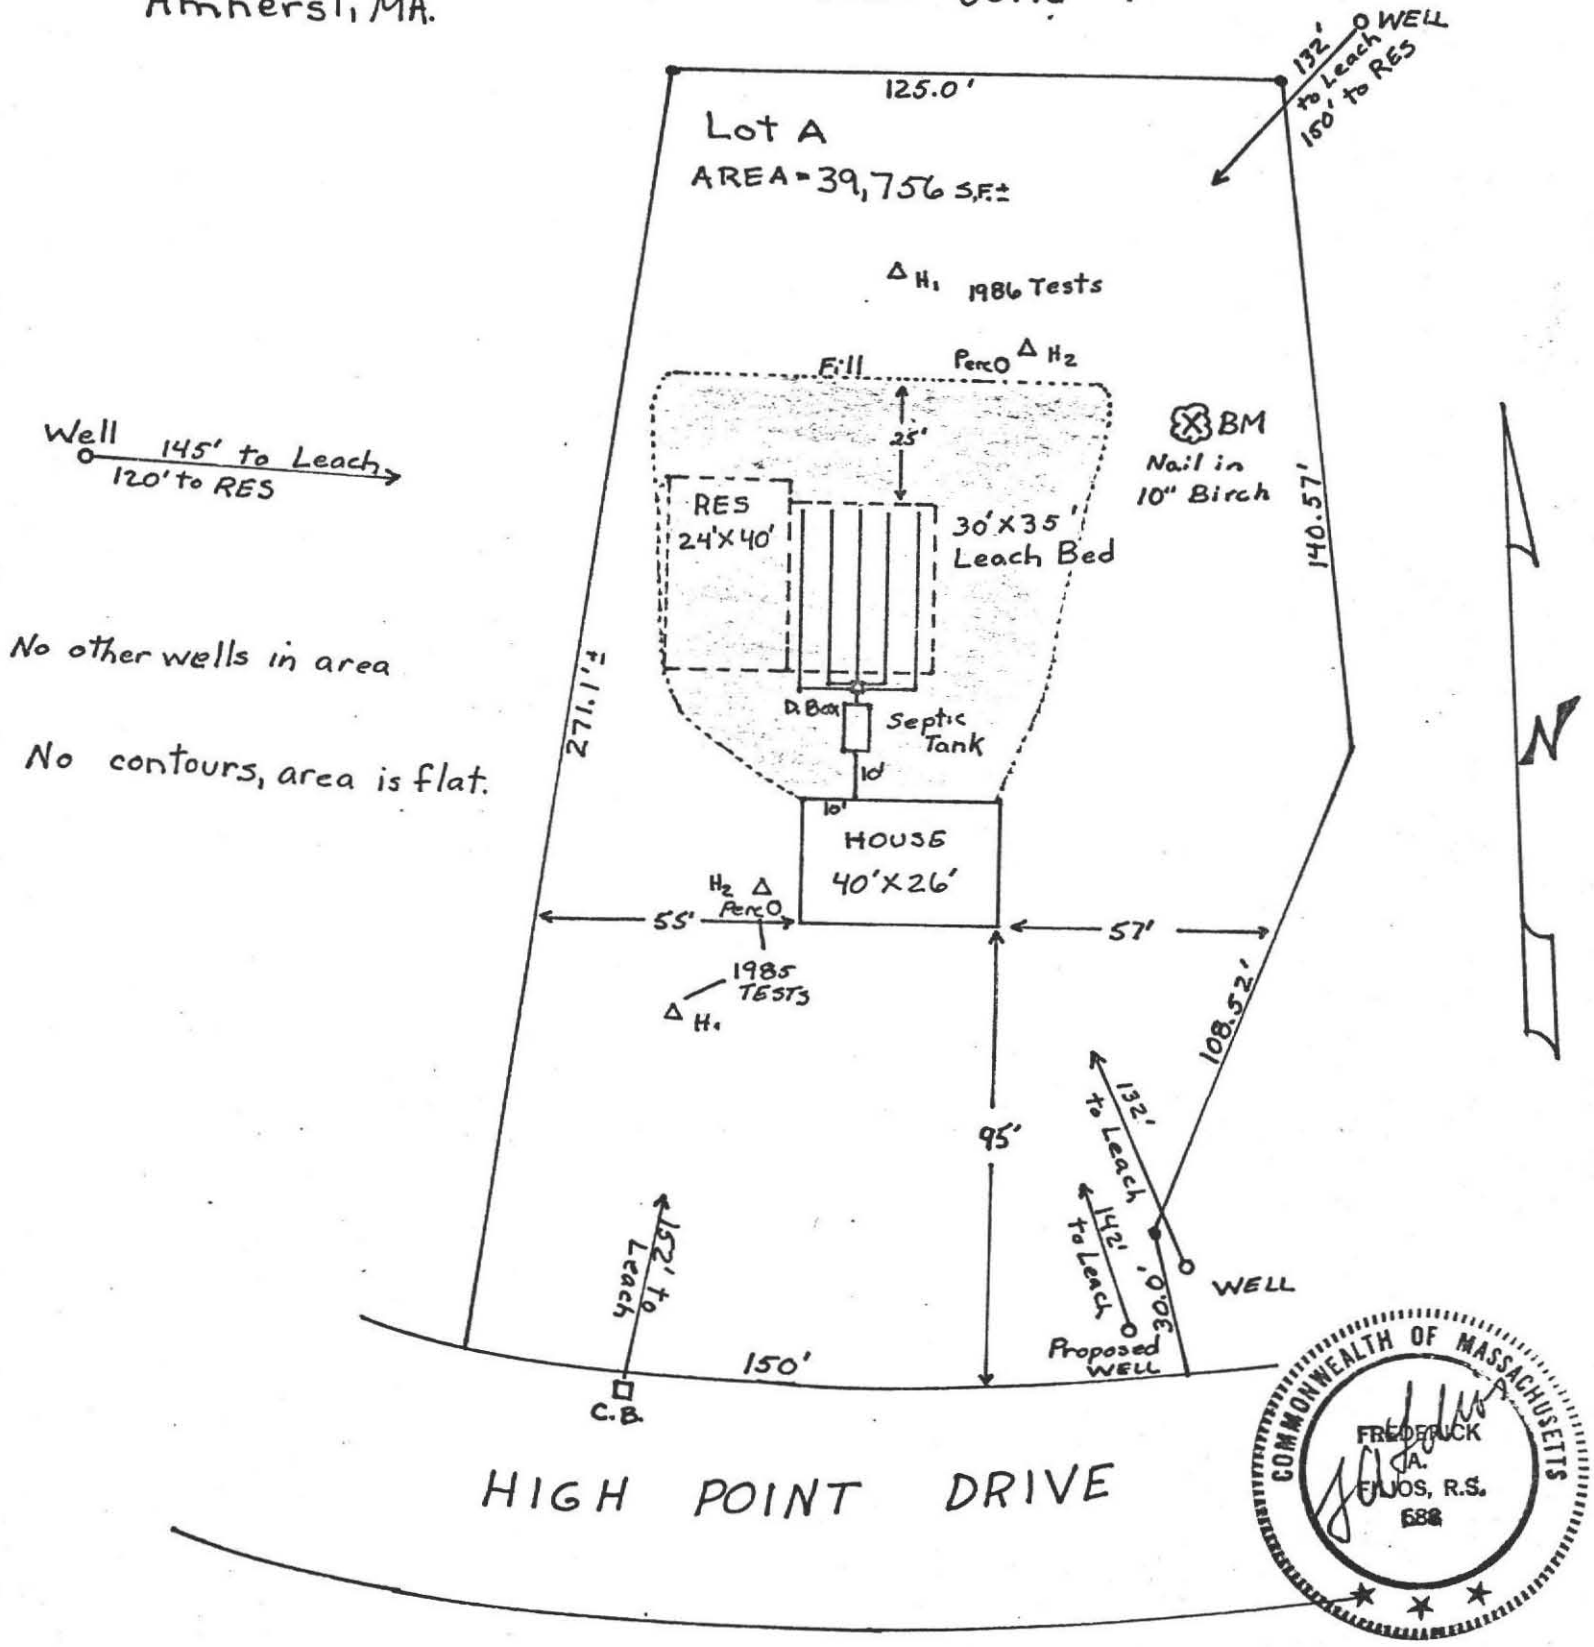 Amherst, MA.
WELL
132'
to Leach
150' to RES
125.0'
Lot A
AREA = 39,756 S.F.±
H1 1986 Tests
Fill
Perc H2
25'
BM
Nail in
10" Birch
Well
145' to Leach
120' to RES
RES
24'X40'
30'X35'
Leach Bed
140.57'
No other wells in area
271.1'±
D. Box
Septic
Tank
N
No contours, area is flat.
10'
10'
HOUSE
40'X26'
H2
Perc
55'
57'
1985
TESTS
H1
108.52'
132'
to Leach
95'
142'
to Leach
152' to
Leach
30.0'
WELL
Proposed
WELL
150'
C.B.
HIGH POINT DRIVE
COMMONWEALTH OF MASSACHUSETTS
FREDERICK
A.
R.S.